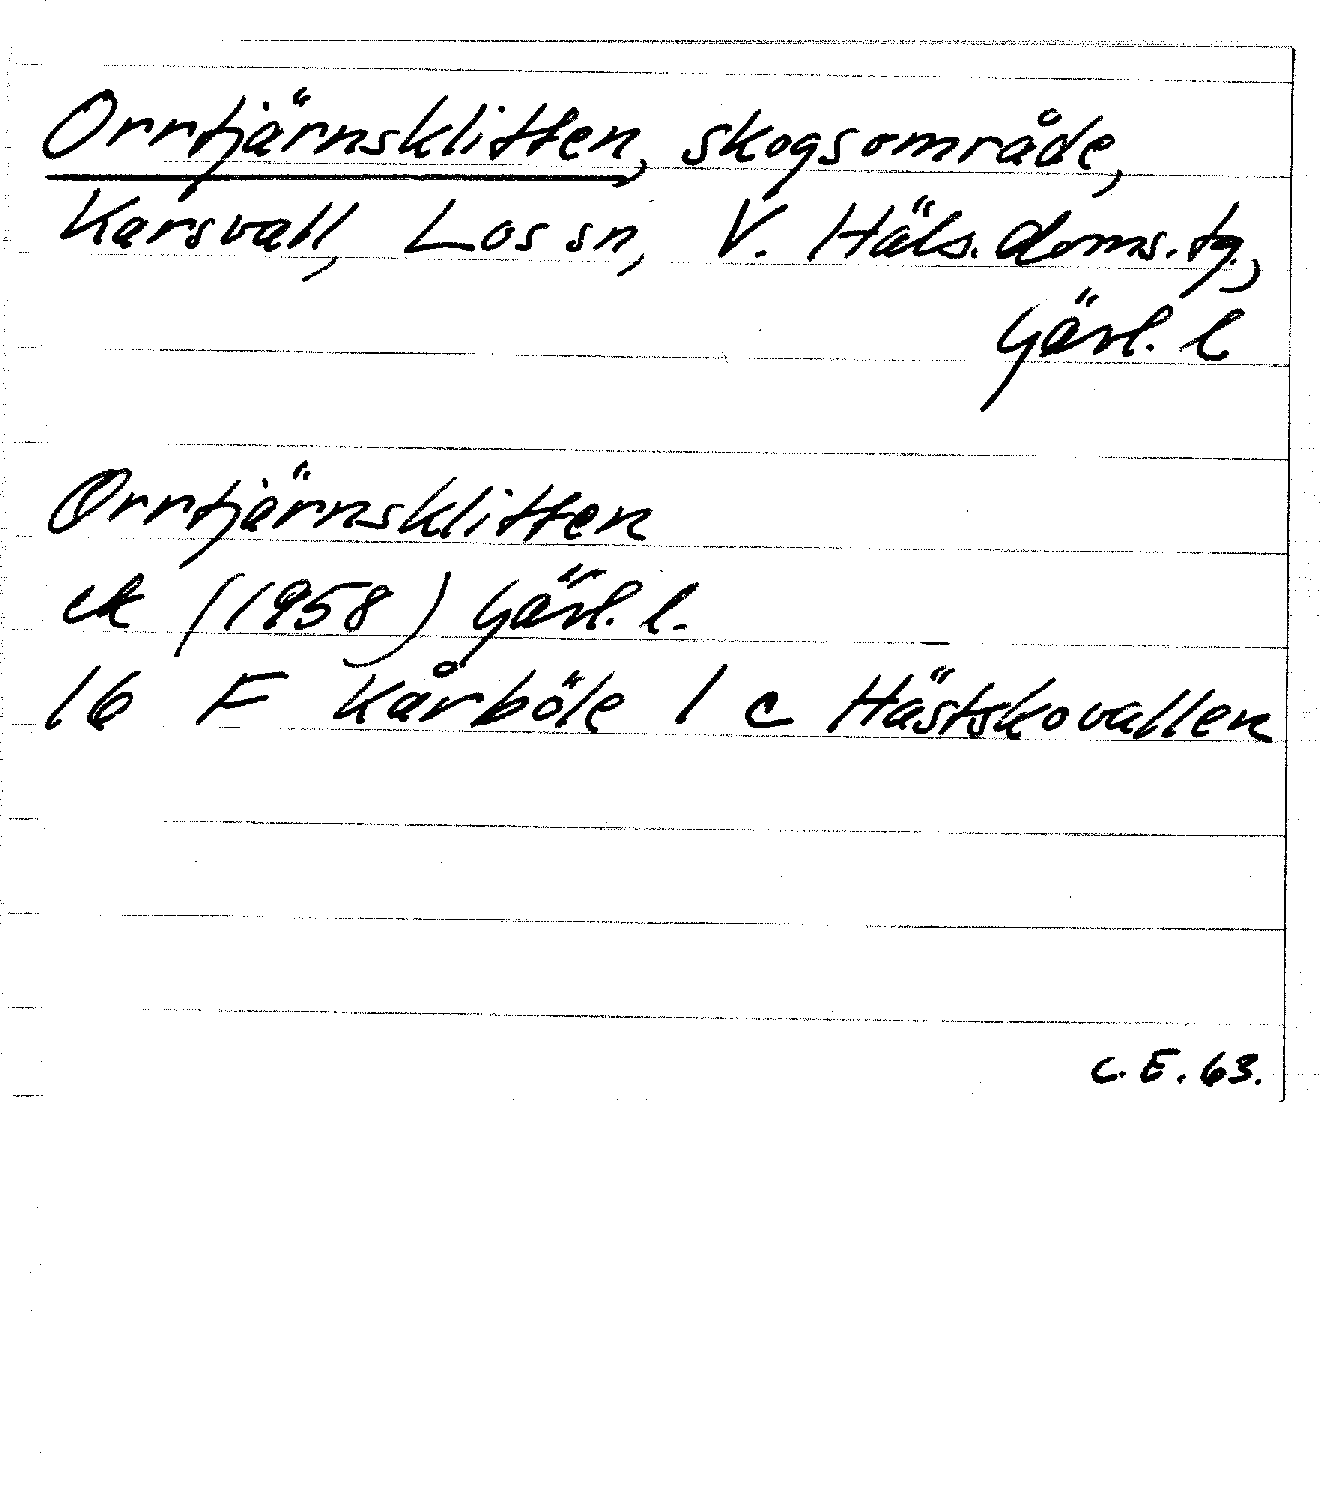 Orrtjärnsklitten, skogsområde,
Karsvall, Los sn, V. Häls. doms. tg.,
Gävl. l
Orrtjärnsklitten
ek (1958) Gävl. l.
16 F Kårböle 1 c Hästskovallen
C. E. 63.